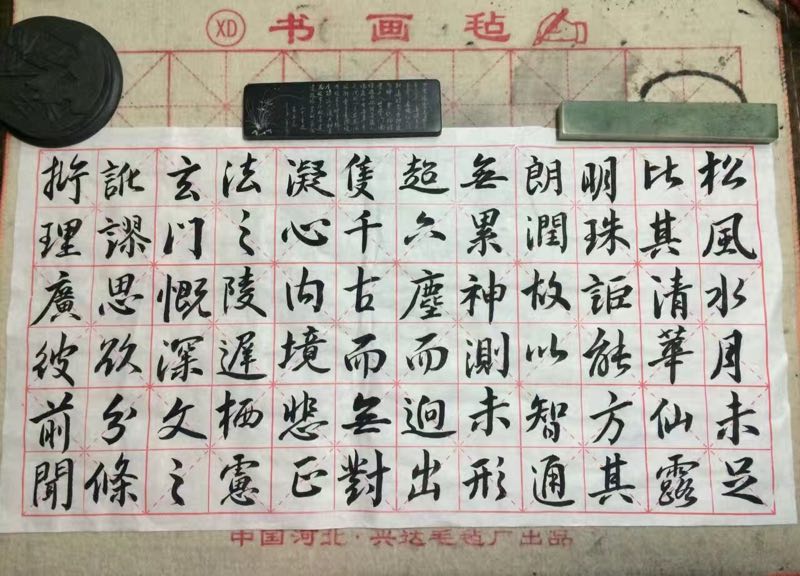 XD 书画毡
松風水月未足
比其清華仙露
明珠詎能方其
朗潤故以智通
無累神測未形
超六塵而迥出
隻千古而無對
凝心内境悲正
法之陵遲栖慮
玄門慨深文之
訛謬思欲分條
析理廣彼前聞
中国河北·兴达毛毡厂出品